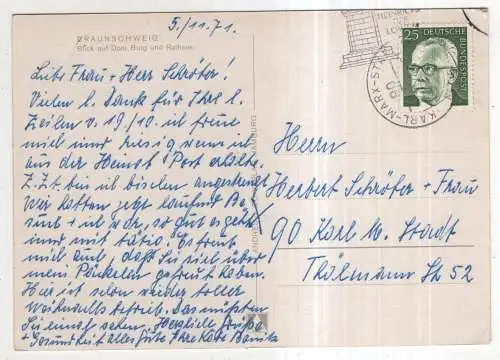 5./11.71.
BRAUNSCHWEIG
Blick auf Dom, Burg und Rathaus
Liebe Frau + Herr Schröter!
Vielen l. Dank für Ihre l.
Zeilen v. 19/10. ich freue
mich und riesig wenn ich
aus der Heimat Post erhalte.
Z.Zt. bin ich bisschen angeknackt
Wir hatten jetzt laufend Be-
such + ich war, so gut es geht
und mit tätig. Es freut
mich auch, daß Sie sich über
mein Päckchen gefreut haben.
Hier ist schon wieder toller
Weihnachts betrieb. Das müßten
Sie einmal sehen. Herzliche Grüße
+ Gesundheit alles gute Ihre Käte
HAMBURG
KARL-MARX-ST
90
25 DEUTSCHE
BUNDESPOST
Herrn
Herbert Schröter + Frau
90 Karl M. Stadt
Thälmann Str 52